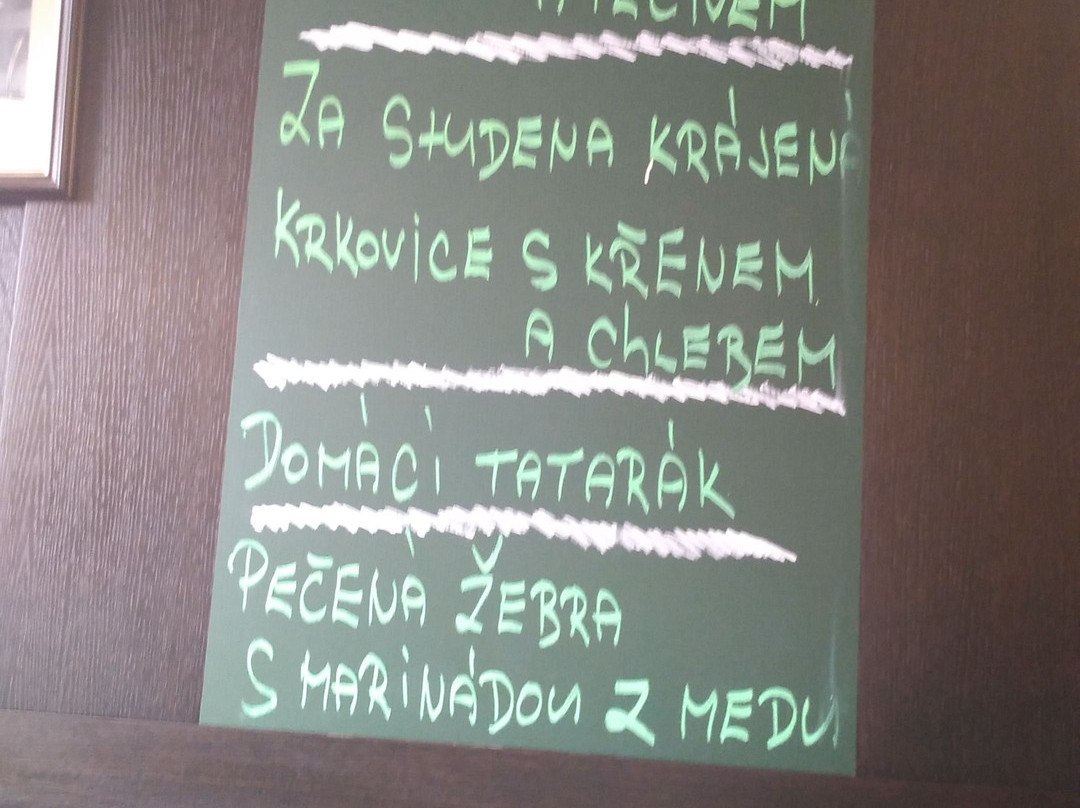 ZA STUDENA KRÁJENÁ
KRKOVICE S KŘENEM
A CHLEBEM
DOMÁCÍ TATARÁK
PEČENÁ ŽEBRA
S MARINÁDOU Z MEDU